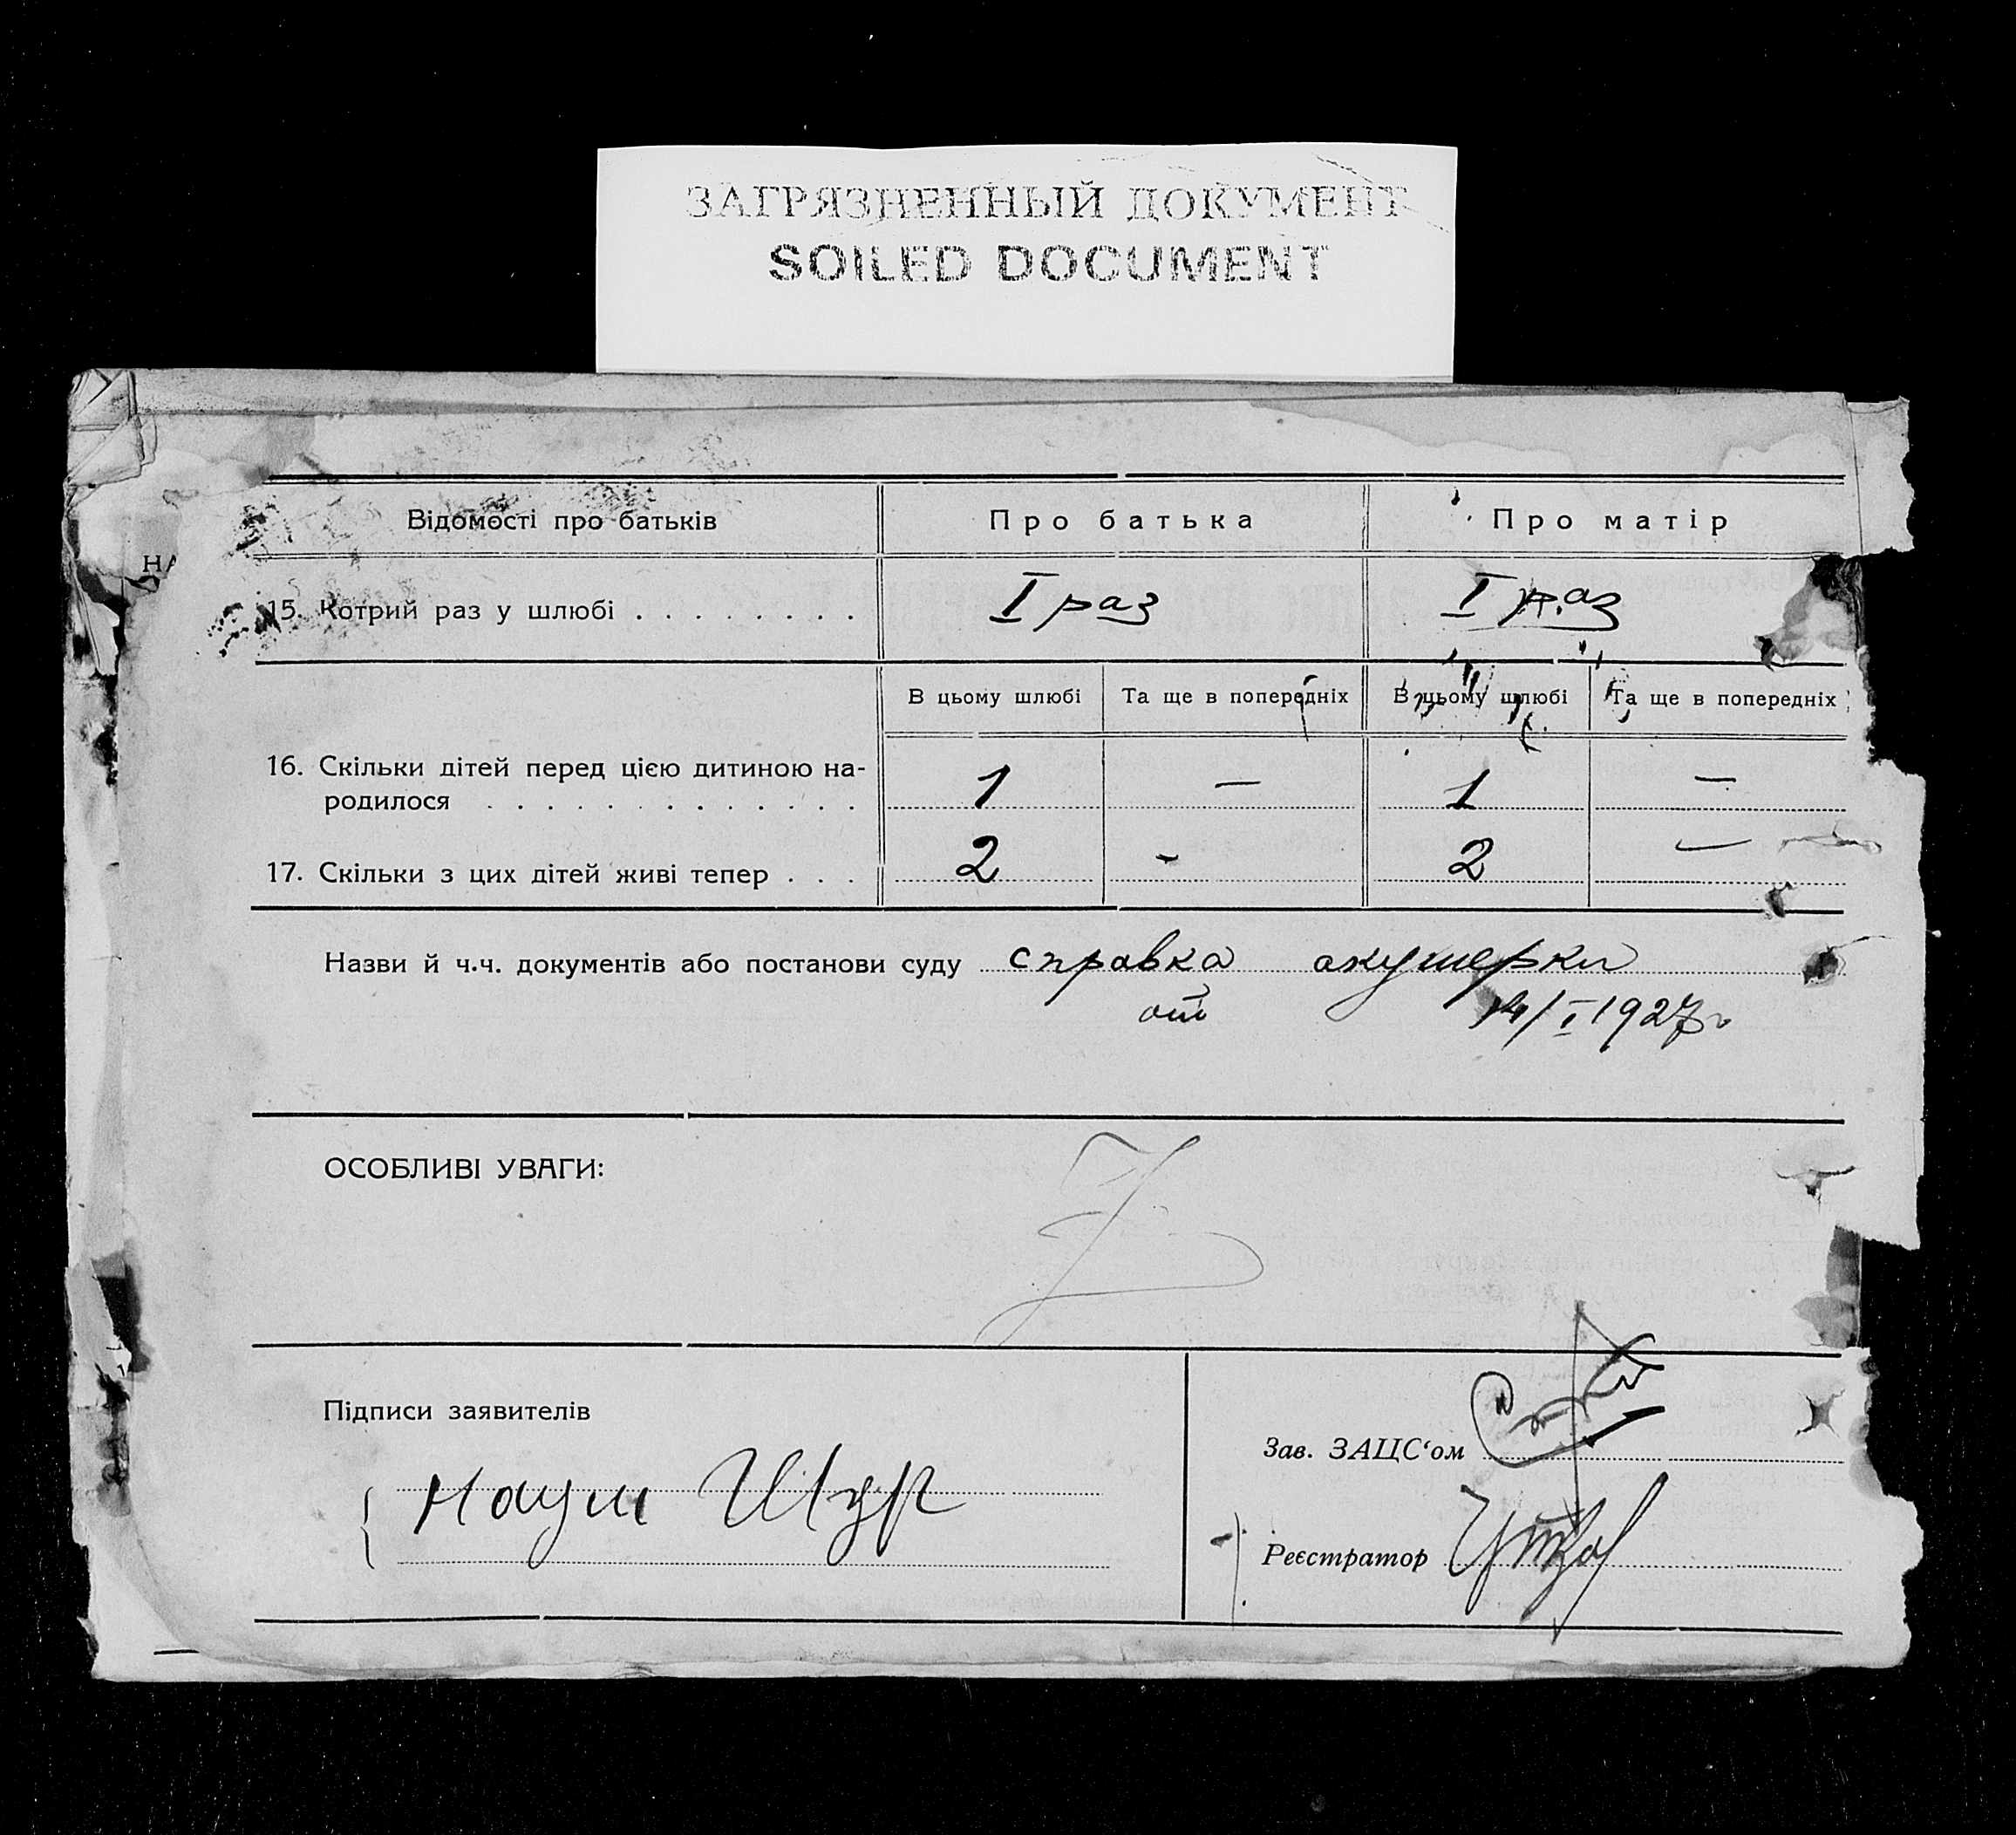 ЗАГРЯЗНЕННЫЙ ДОКУМЕНТ
SOILED DOCUMENT
Відомості про батьків Про батька Про матір
НА
15. Котрий раз у шлюбі . . . . . . . . I раз I раз
В цьому шлюбі Та ще в попередніх В цьому шлюбі Та ще в попередніх
16. Скільки дітей перед цією дитиною на-
родилося . . . . . . . . . . . . . 1 — 1 —
17. Скільки з цих дітей живі тепер . . . 2 - 2 —
Назви й ч.ч. документів або постанови суду справка акушерки
от 14/I 1927 г
ОСОБЛИВІ УВАГИ:
Підписи заявителів
Зав. ЗАЦС‘ом
Наум Шур
Реєстратор